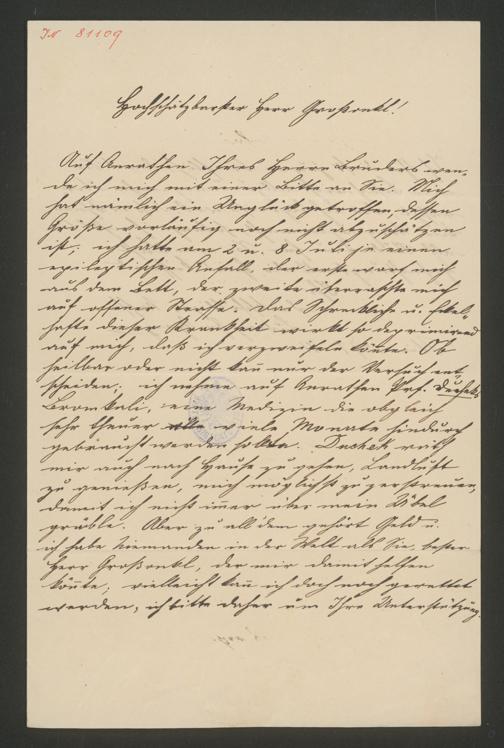 IN 81109
Hochschätzbarster Herr Großonkl!
Auf Anrathen Ihres Herrn Bruders wen,
de ich mich mit einer Bitte an Sie. Mich
hat nämlich ein Unglück getroffen, dessen
Größe vorläufig noch nicht abzuschätzen
ist; ich hatte am 2 u. 8 Juli je einen
epileptischen Anfall, der erste warf mich
aus dem Bett, der zweite überraschte mich
auf offener Strasse. Das Schreckliche u. Ekel,
hafte dieser Krankheit wirkt so deprimirend
auf mich, daß ich verzweifeln könte. Ob
heilbar oder nicht kan nur der Versuch ent,
scheiden; ich nehme auf Anrathen Prf. Duchek
Bromkali, eine Medizin die obgleich
sehr theuer viele Monate hindurch
gebraucht werden sollen. Duchek räth
mir auch nach Hause zu gehen, Landluft
zu genießen, mich möglichst zu zerstreuen,
damit ich nicht imer über mein Übel
grüble. Aber zu all dem gehört Geld u.
ich habe Niemanden in der Welt als Sie, bester
Herr Großonkl, der mir damit helfen
könte; vielleicht kan ich doch noch gerettet
werden, ich bitte daher um Ihre Unterstützung.